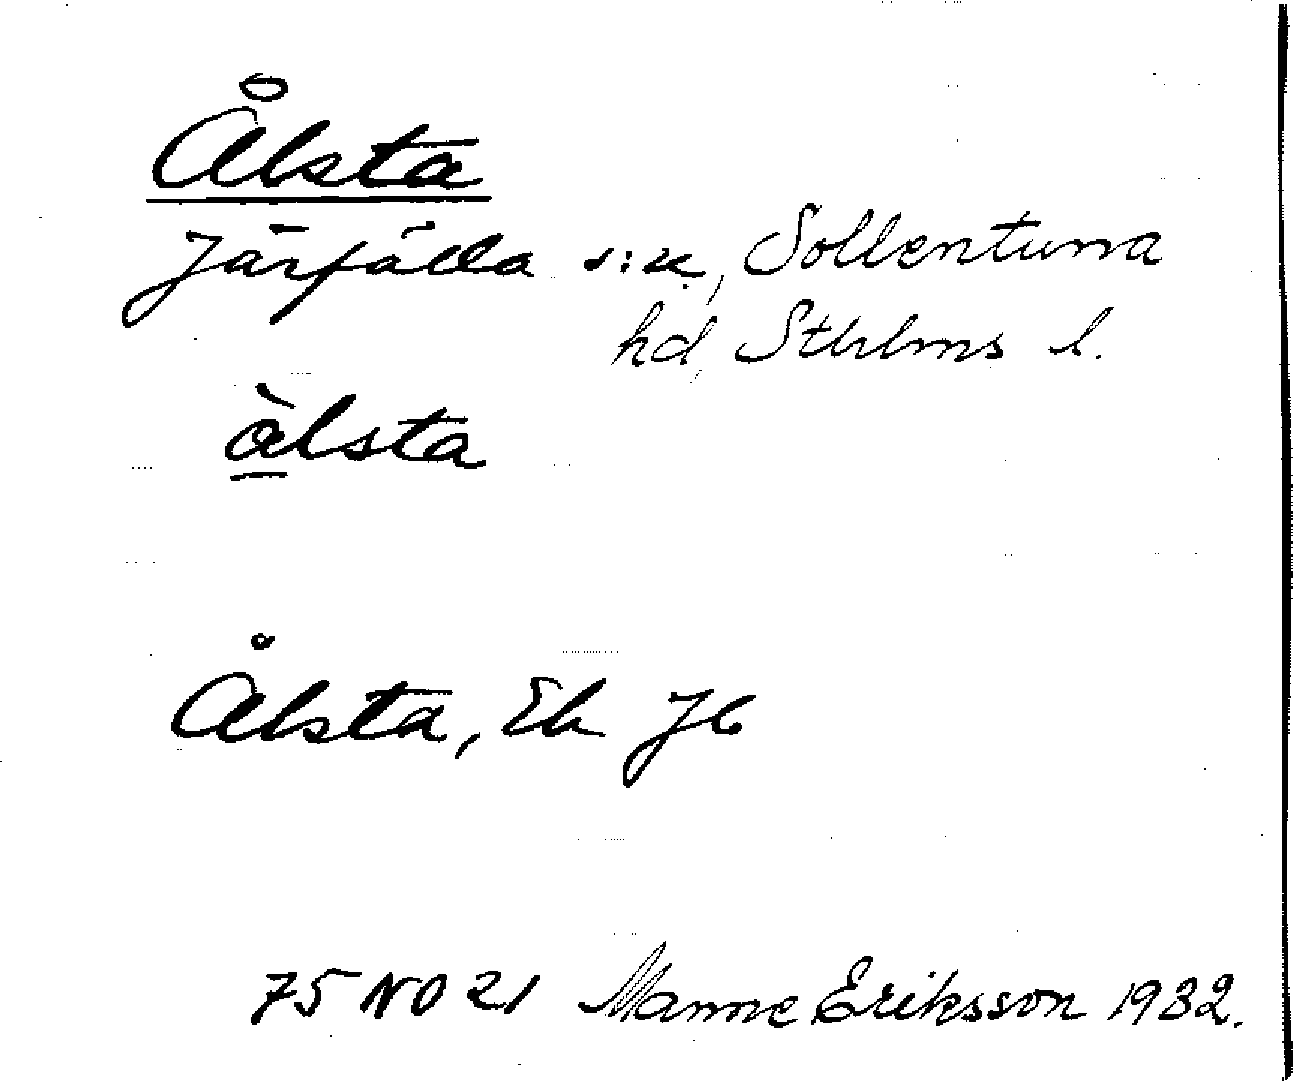 Ålsta
Järfälla s:n, Sollentuna
hd, Sthlms l.
àlsta
Ålsta, Ek Jb
75 NO 21 Manne Eriksson 1932.